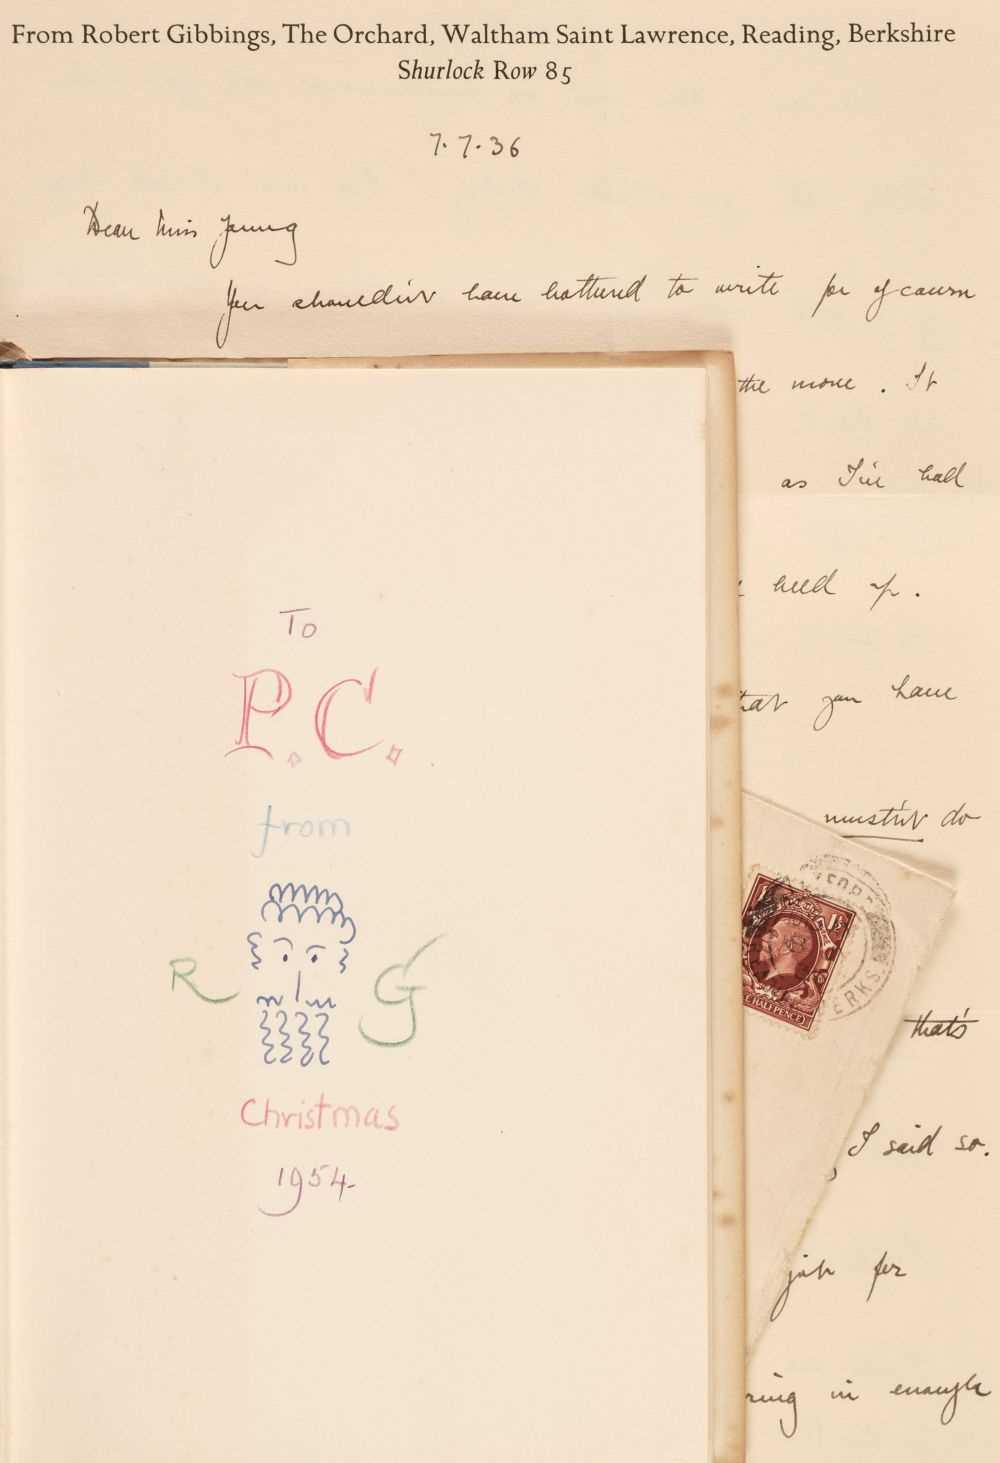 From Robert Gibbings, The Orchard, Waltham Saint Lawrence, Reading, Berkshire
Shurlock Row 85
7.7.36
Dear Miss Young
You shouldn't have bothered to write for of course
the more. It
as I've had
held up.
that you have
mustn't do
that's
I said so.
job for
ring in enough
To
P.C.
from
R G
Christmas
1954
1½
HALFPENCE
ERKS